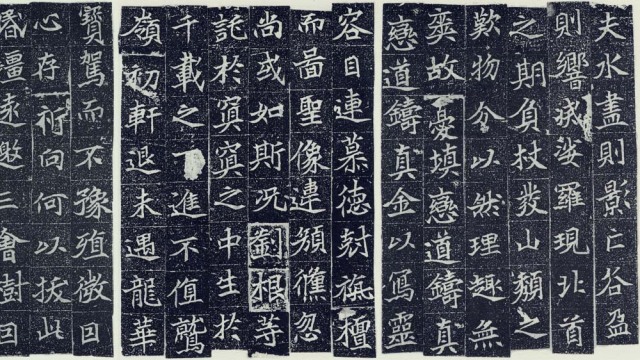 夫水盡則影亡谷盈
則響滅娑羅現北首
之期負杖發山頹之
歎物分以然理趣無
爽故憂填戀道鑄真
戀道鑄真金以寫靈
容目連慕德刻旃檀
而圖聖像違顏儵忽
尚或如斯況劉根等
託於冥冥之中生於
千載之下進不值鷲
嶺初軒退未遇龍華
寶駕而不豫殖微因
心存祈向何以拔此
昏疆遠邀三會樹因